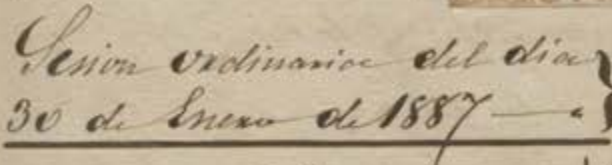 Sesion ordinaria del dia
30 de Enero de 1887